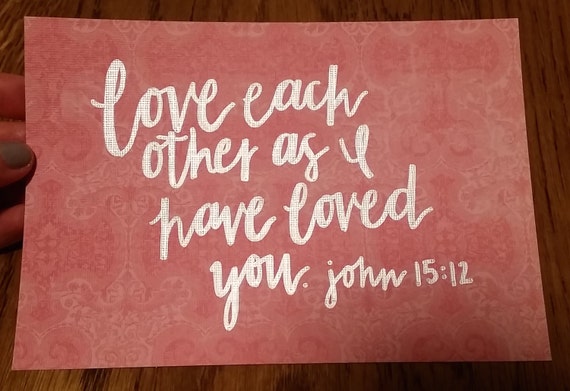 love each
other as I
have loved
you. john 15:12